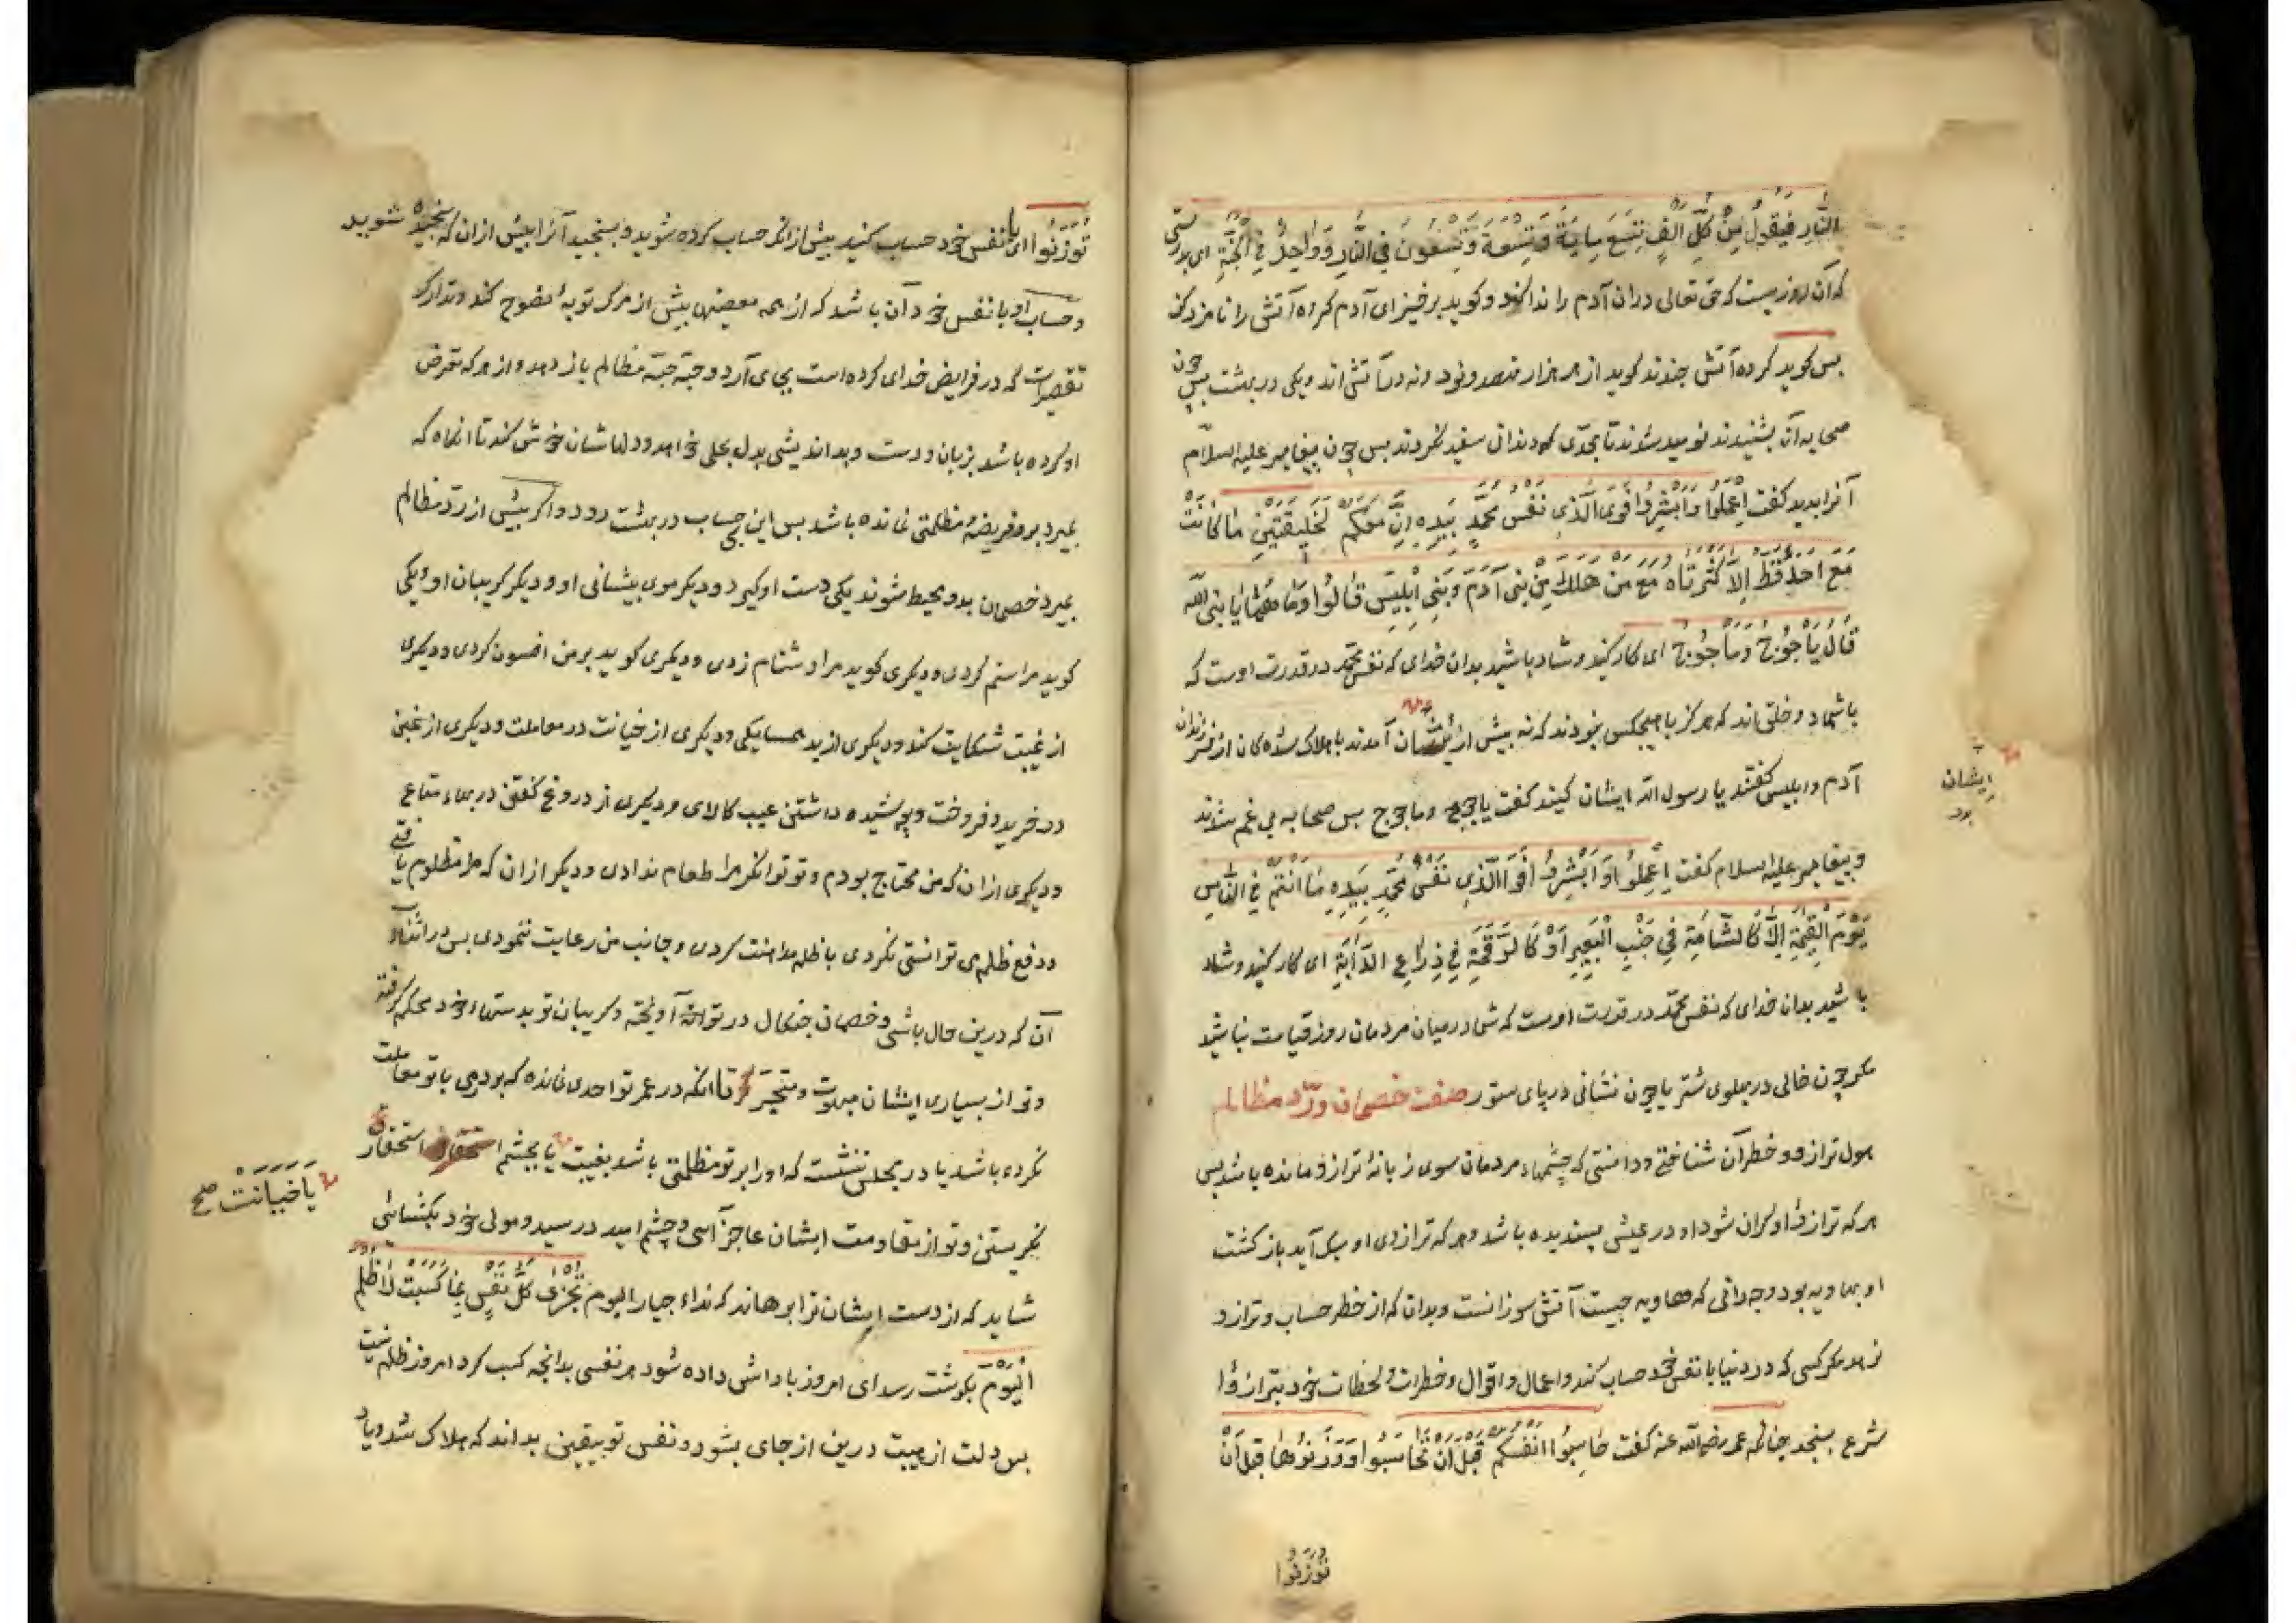 النَّارِ فَيَقُولُ مِنْ كُلِّ اَلْفٍ تِسْعَ مِايَةٍ وَتِسْعَةً وَتِسْعُونَ فِي النَّارِ وَوَاحِدٌ فِي الْجَنَّةِ ای بدرستی
که آن روزیست که حق تعالی دران آدم را ندا کند و کوید برخیز ای آدم کروه آتش را نامزد کن
بس کوید کروه آتش جندند کوید از هر هزار نهصد و نود و نه در آتش اند و یکی در بهشت بس جون
صحابه آن بشنیدند نومید شدند تا بحدی که دندان سفید نکردند بس جون بیغامبر علیه السلام
آنرا بدید کفت اِعْمَلُوا وَاَبْشِرُوا فَوَ الَّذِي نَفْسُ مُحَمَّدٍ بِيَدِهِ اِنَّ مَعَكُمْ لَخَلِيقَتَيْنِ مَا كَانَتْ
مَعَ اَحَدٍ قَطُّ اِلَّا كَثَّرَتَاهُ مَعَ مَنْ هَلَكَ مِنْ بَنِي آدَمَ وَبَنِي اِبْلِيسَ قَالُوا وَمَا هُمَا يَا نبي الله
قَالَ يَأْجُوْجُ وَمَأْجُوْجُ ای کار کنید و شاد باشید بدان خدای که نفس محمد در قدرت اوست که
با شما دو خلق اند که هرکز با هیجکس نبودند که نه بیش از ایشان آمدند با هلاک شده کان از فرزندان
آدم و ابلیس کفتند یا رسول الله ایشان کیند کفت یاجوج و ماجوج بس صحابه بی غم شدند
و بیغامبر علیه السلام کفت اِعْمَلُوا وَاَبْشِرُوا فَوَ الَّذِي نَفْسُ مُحَمَّدٍ بِيَدِهِ مَا اَنْتُمْ فِي النَّاسِ
يَوْمَ الْقِيٰمَةِ اِلَّا كَالشَّامَةِ فِي جَنْبِ الْبَعِيرِ اَوْ كَالرَّقْمَةِ فِي ذِرَاعِ الدَّابَّةِ ای کار کنید و شاد
باشید بدان خدای که نفس محمد در قدرت اوست که شما در میان مردمان روز قیامت نباشید
مکر جون خالی در بهلوی شتر یا جون نشانی در بای ستور صفت خصمان و ردّ مظالم
هول ترازو و خطر آن شناختی و دانستی که جشمهاء مردمان سوی زبانهٔ ترازو مانده باشد بس
هر که ترازوء او کران شود او در عیشی بسندیده باشد و هر که ترازوی او سبک آید بازکشت
او بهاویه بود و جه دانی که هاویه جیست آتش سوزانست و بدان که از خطر حساب و ترازو
نرهد مکر کسی که در دنیا با نفس خود حساب کند و اعمال و اقوال و خطرات و لحظات خود بترازوء
شرع بسنجد جنانکه عمر رضی الله عنه کفت حَاسِبُوا اَنْفُسَكُمْ قَبْلَ اَنْ تُحَاسَبُوا وَوَزِنُوهَا قَبْلَ اَنْ
تُوْزَنُوا
ایشان
بود
تُوْزَنُوا ای با نفس خود حساب کنید بیش از انکه حساب کرده شوید و بسنجید آنرا بیش ازان که سنجیده شوید
و حساب او با نفس خود آن باشد که از همه معصیتها بیش از مرک توبهٔ نصوح کند و تدارک
تقصیرات که در فرایض خدای کرده است بجای آرد و حبّه حبّه مظالم باز دهد و از هر که تعرض
او کرده باشد بزبان و دست و بد اندیشی بدل بحلی خواهد و دلهاشان خوش کند تا انکاه که
بمیرد برو فریضهٔ و مظلمتی نمانده باشد بس این بی حساب در بهشت رود و اکر بیش از ردّ مظالم
بمیرد خصمان بدو محیط شوند یکی دست او کیرد و دیکر موی بیشانی او و دیکر کریبان او و یکی
کوید مرا ستم کردی و دیکری کوید مرا دشنام زدی و دیکری کوید بر من افسوس کردی و دیکری
از غیبت شکایت کند و دیکری از بد همسایکی و دیکری از خیانت در معاملت و دیکری از غبن
در خرید و فروخت و بوشیده داشتن عیب کالای و دیکری از دروغ کفتن در بهاء متاع
و دیکری ازان که من محتاج بودم و تو توانکر مرا طعام ندادی و دیکر ازان که مرا مظلوم یافتی
و دفع ظلم می توانستی نکردی با ظلم مداهنت کردی و جانب من رعایت ننمودی بس در اثناء
آن که درین حال باشی و خصمان جنکال در تو آویخته و کریبان تو بدستهاء خود محکم کرفته
و تو از بسیاری ایشان مبهوت و متحیر تا انکه در عمر تو احدی نمانده که بودمی با تو معاملت
نکرده باشد یا در مجلس ننشست که او را بر تو مظلمتی باشد بغیبت یا بجشم استحقار
نکریستن و تو از مقاومت ایشان عاجز آسی و جشم امید در سید و مولی خود بکشائی
شاید که از دست ایشان ترا برهاند که نداء جبار الیوم تُجْزَى كُلُّ نَفْسٍ بِمَا كَسَبَتْ لَا ظُلْمَ
الْيَوْمَ بکوشت رسد ای امروز باداش داده شود هر نفسی بدانجه کسب کرد امروز ظلم نیست
بس دلت از هیبت درین از جای بشود و نفس تو بیقین بداند که هلاک شد و یاد
یا خیانت صح